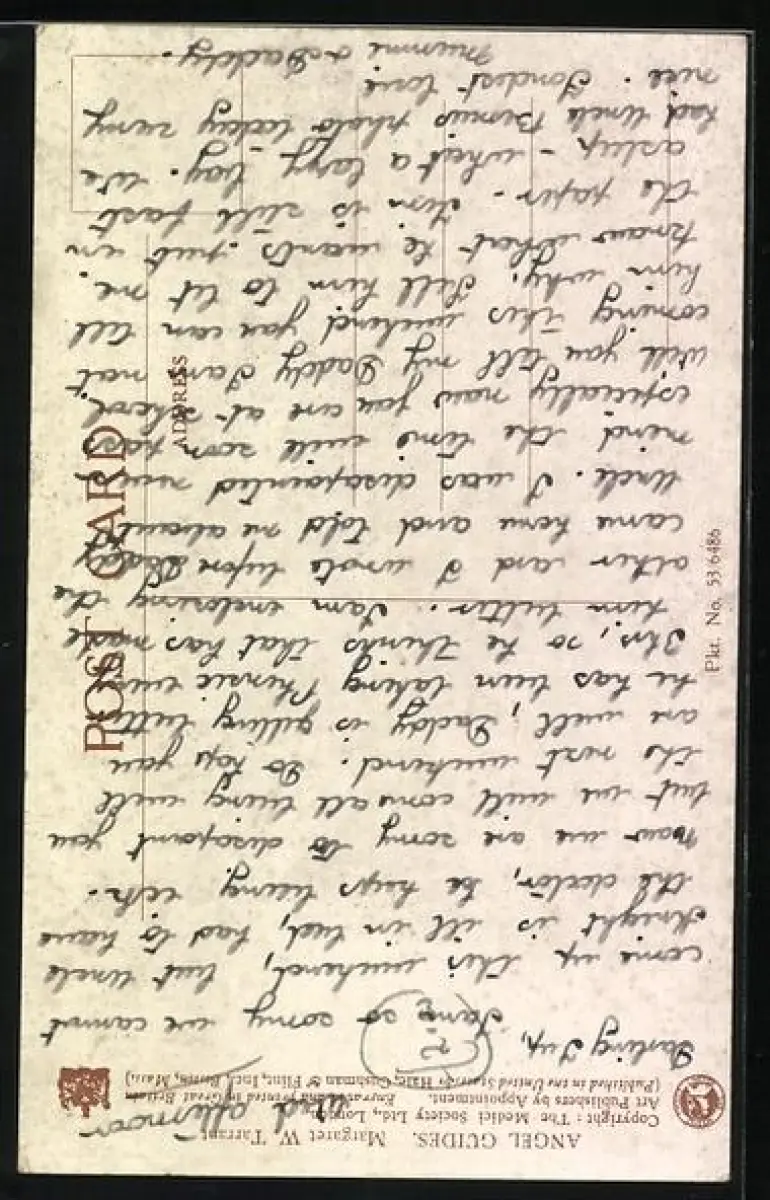 ANGEL GUIDES. Margaret W. Tarrant
Copyright : The Medici Society Ltd., London.
Art Publishers by Appointment. Engraved and Printed in Great Britain
(Published in the United States by Hale, Cushman & Flint, Inc., Boston, Mass.)
Wed afternoon
Darling
I am so sorry we cannot
come up this weekend, but Uncle
Knight is ill in bed, had to have
the doctor, he keeps being sick.
now we are sorry to disapoint you
but we will come all being well
the next weekend. Do hope you
are well, Daddy is feeling better
he has been taking Phensic
this, so he thinks that has made
him better. I am enclosing the
other card I wrote before Daddy
came home and told me about
Uncle. I was disapointed never
mind the time will soon pass
especially now you are at school
Will you tell my Daddy I am not
coming this weekend you can tell
him why, tell him to let me
know what he wants put in
the paper. Jim is still fast
asleep - what a lazy boy. We
had Uncle photo today very
nice. Fondest love
Mummie & Daddy.
POST CARD
ADDRESS
Pkt. No. 53/6486